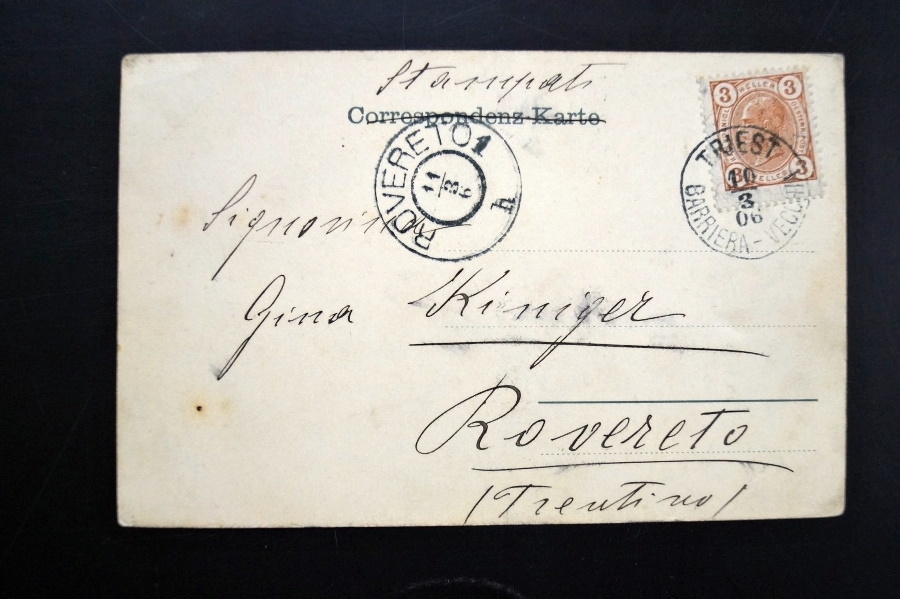 Stampati
Correspondenz-Karte
3 HELLER 3
3
TRIEST
10
3
06
BARRIERA-VECCHIA
ROVERETO 1
11
3
6
h
Signorina
Gina Kiniger
Rovereto
(Trentino)